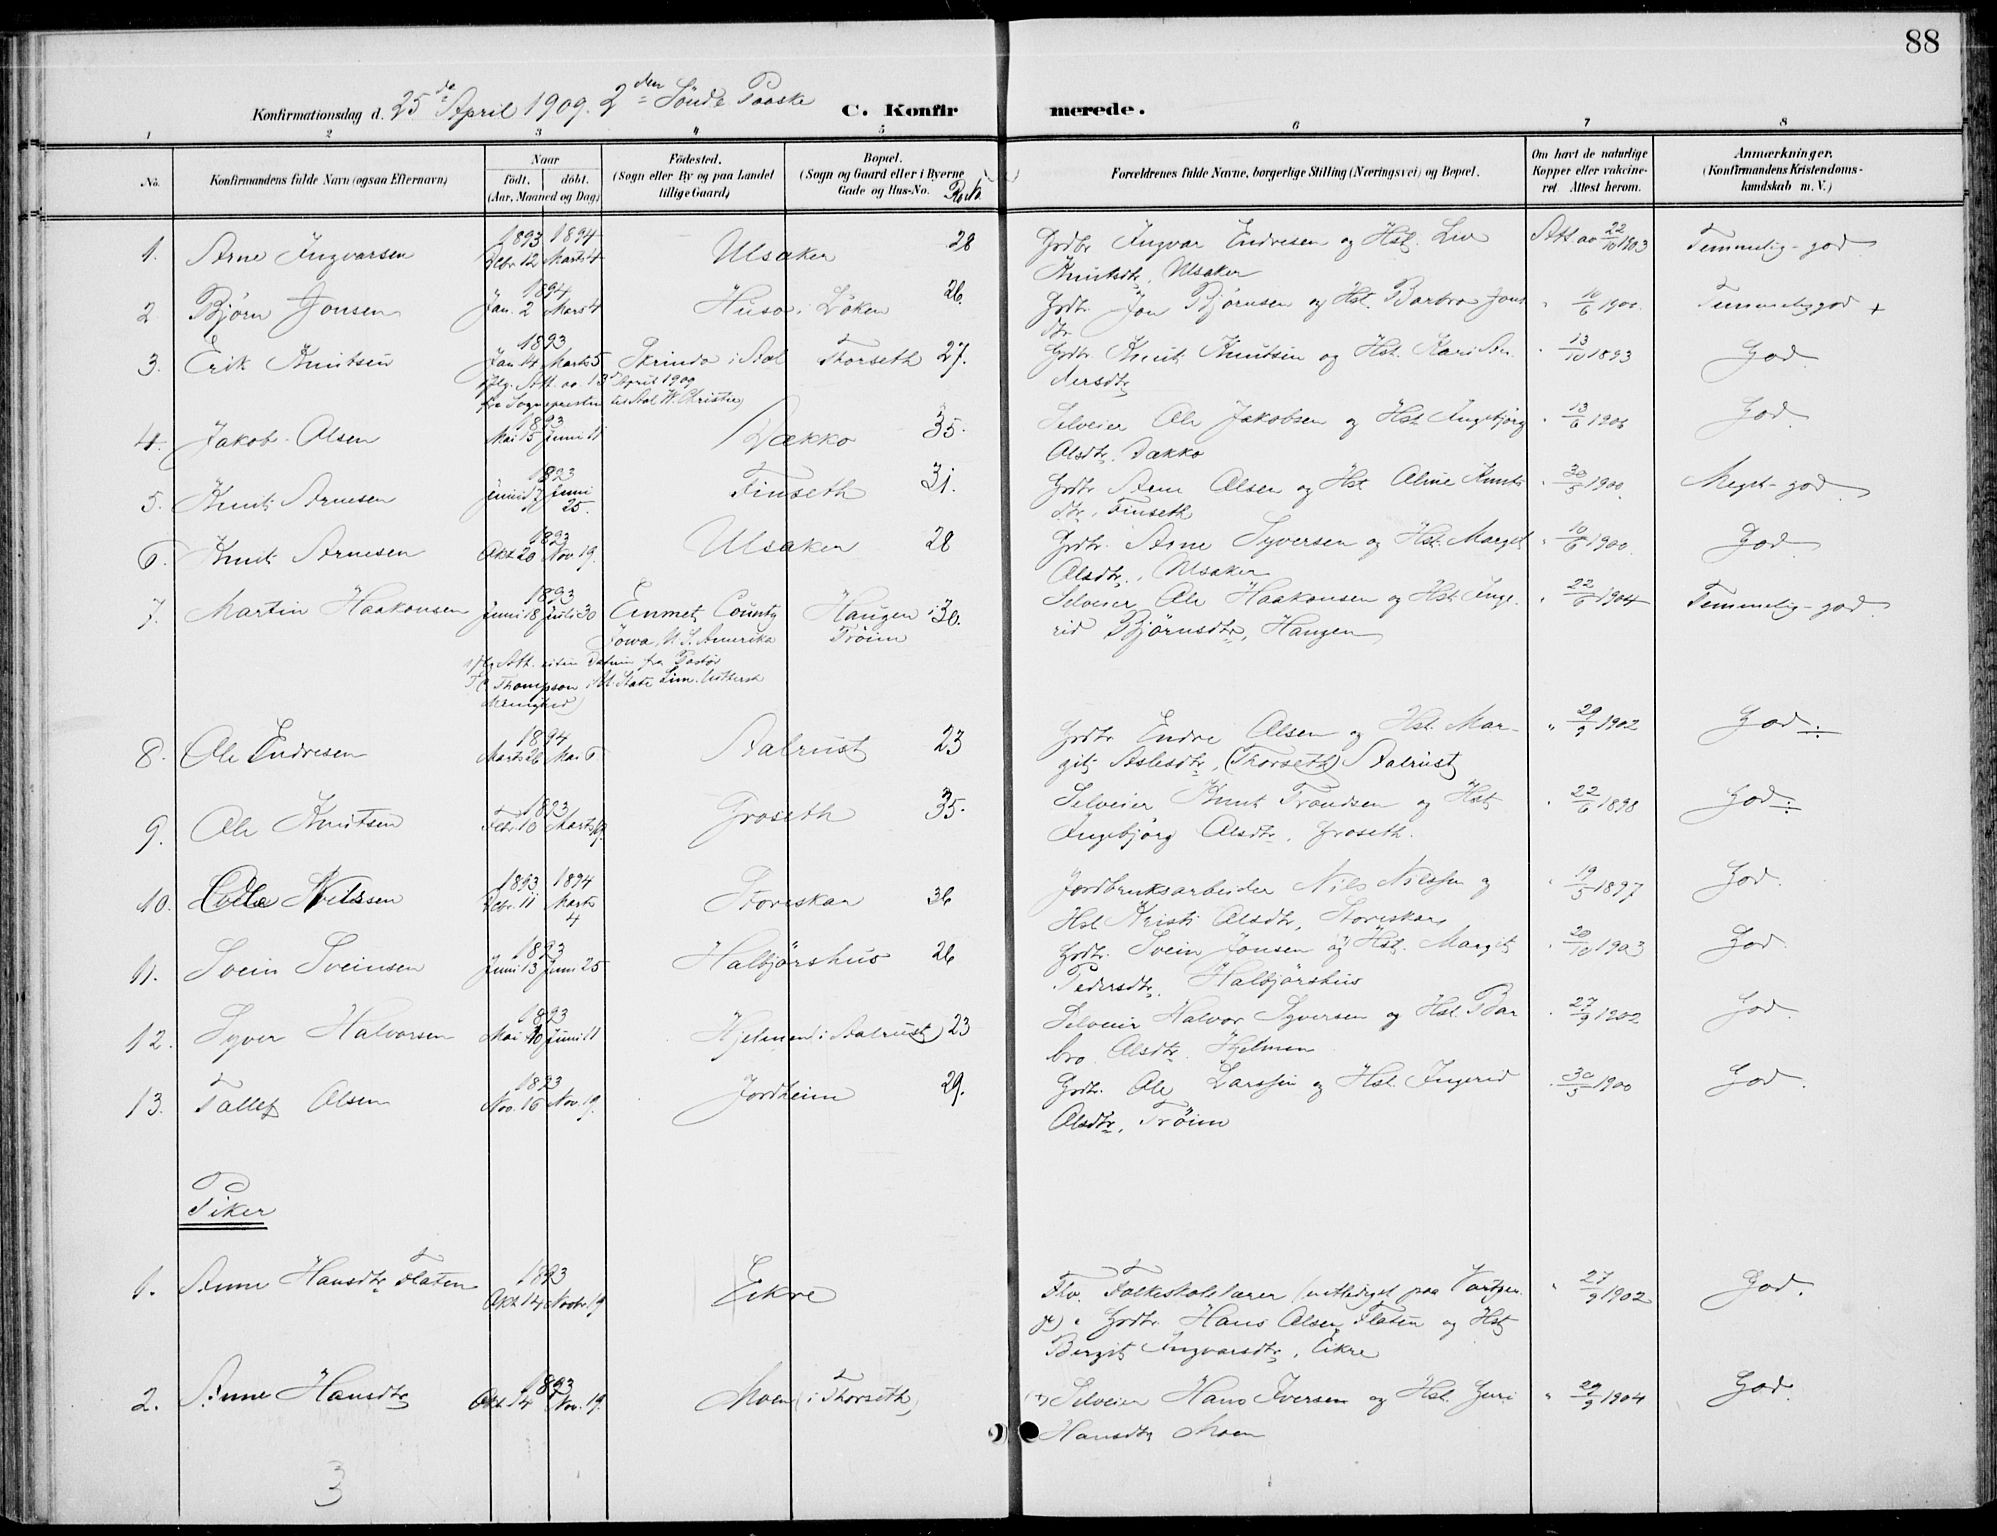 88
Konfirmationsdag d. 25de April 1909. 2den Sönd. Paaske
C. Konfirmerede.
1 2 3 4 5 6 7 8
No. Konfirmandens fulde Navn (ogsaa Efternavn) Naar født, døbt. (Aar, Maaned og Dag) Fødested. (Sogn eller By og paa Landet tillige Gaard) Bopæl. (Sogn og Gaard eller i Byerne Gade og Hus-No. Forældrenes fulde Navne, borgerlige Stilling (Næringsvei) og Bopæl. Om havt de naturlige Kopper eller vakcineret. Attest herom. Anmærkninger. (Konfirmandens Kristendomskundskab m. V.)
1. Arne Ingvarsen 1893 Dcbr. 12 1894 Marts 4 Ulsaker 28 Grdbr. Ingvar Endresen og Hst. Liv Att. av 22/10 1903 Temmelig-god
Knutsdtr, Ulsaker
2. Bjørn Jonsen 1894 Jan. 2 Mars 4 Huso i Løken 26. Grdbr. Jon Bjørnsen og Hst. Barbro Jons " 10/6 1900. Temmelig god +
dtr
3. Erik Knutsen 1893 Jan 14 Marts 5 Skrindo i Aal Thorseth 27. Grdbr. Knut Knutsen og Hst. Kari An- " 13/10 1893 God
dersdtr
iflg. Att. av 13 April 1909
fra Sognepresten til Aal W. Christie)
4. Jakob Olsen 1893 Mai 15 Juni 11 Dækko 35. Selveier Ole Jakobsen og Hst. Ingebjørg " 13/6 1906 God
Olsdtr. Dækko
5. Knut Arnesen 1893 Juni 17 Juni 25. Finseth 31. Grdbr. Arne Olsen og Hst. Oline Knuts " 30/5 1900. Meget-god
dtr, Finseth
6. Knut Arnesen 1893 Okt. 20 Nov. 19. Ulsaker 28 Grdbr. Arne Syversen og Hst. Margit " 10/6 1900. God
Olsdtr., Ulsaker
7. Martin Haakonsen 1893 Juni 18 Juli 30 Emmet County Haugen i 30. Selveier Ole Haakonsen og Hst. Inge- " 22/6 1904 Temmelig-god
Iowa, U. S. Amerika Trøim rid Bjørnsdtr, Haugen
iflg. Att. uten Datum fra Pastor
Thompson
Menighed)
8. Ole Endresen 1894 Marts 26 Mai 6 Aalrust 23 Grdbr. Endre Olsen og Hst. Mar- " 29/9 1902 God
git Aslesdtr, (Thorseth) Aalrust
9. Ole Knutsen 1893 Febr. 10 Marts 19. Groseth 35. Selveier Knut Trondsen og Hst. " 22/6 1898 God
Ingebjørg Olsdtr, Groseth.
10. Nilssen 1893 Dcbr. 11 1894 Marts 4 Storeskar 36 Jordbruksarbeider Nils Nilssen og " 19/5 1897 God
Hst. Kristi Olsdtr, Storeskar
11. Svein Sveinsen 1893 Juni 13 Juni 25 Halbjørshus 26 Grdbr. Svein Jonsen og Hst. Margit " 20/10 1903 God
Pedersdtr. Halbjørshus
12. Syver Halvorsen 1893 Mai 10 Juni 11 Hjelmen (i Aalrust) 23 Selveier Halvor Syversen og Hst. Bar " 27/9 1902 God
bro Olsdtr. Hjelmen
13. Tollef Olsen 1893 Nov. 16 Nov. 19. Jordheim 29. Grdbr. Ole Larssen og Hst. Ingerid " 30/5 1900 God
Olsdtr, Trøim
Piker
1. Anne Hansdtr Flaten 1893 Okt. 14 Novbr. 19. Eikre Fhv. Folkeskolelærer " 27/9 1902 God.
Grdbr. Hans Olsen Flaten og Hst.
Bergit Ingvarsdtr, Eikre
2. Anne Hansdtr 1893 Okt. 14 Nov. 19. Moen (i Thorseth) (+) Selveier Hans Iversen og Hst. Guri " 29/9 1904 God
Hansdtr Moen
3